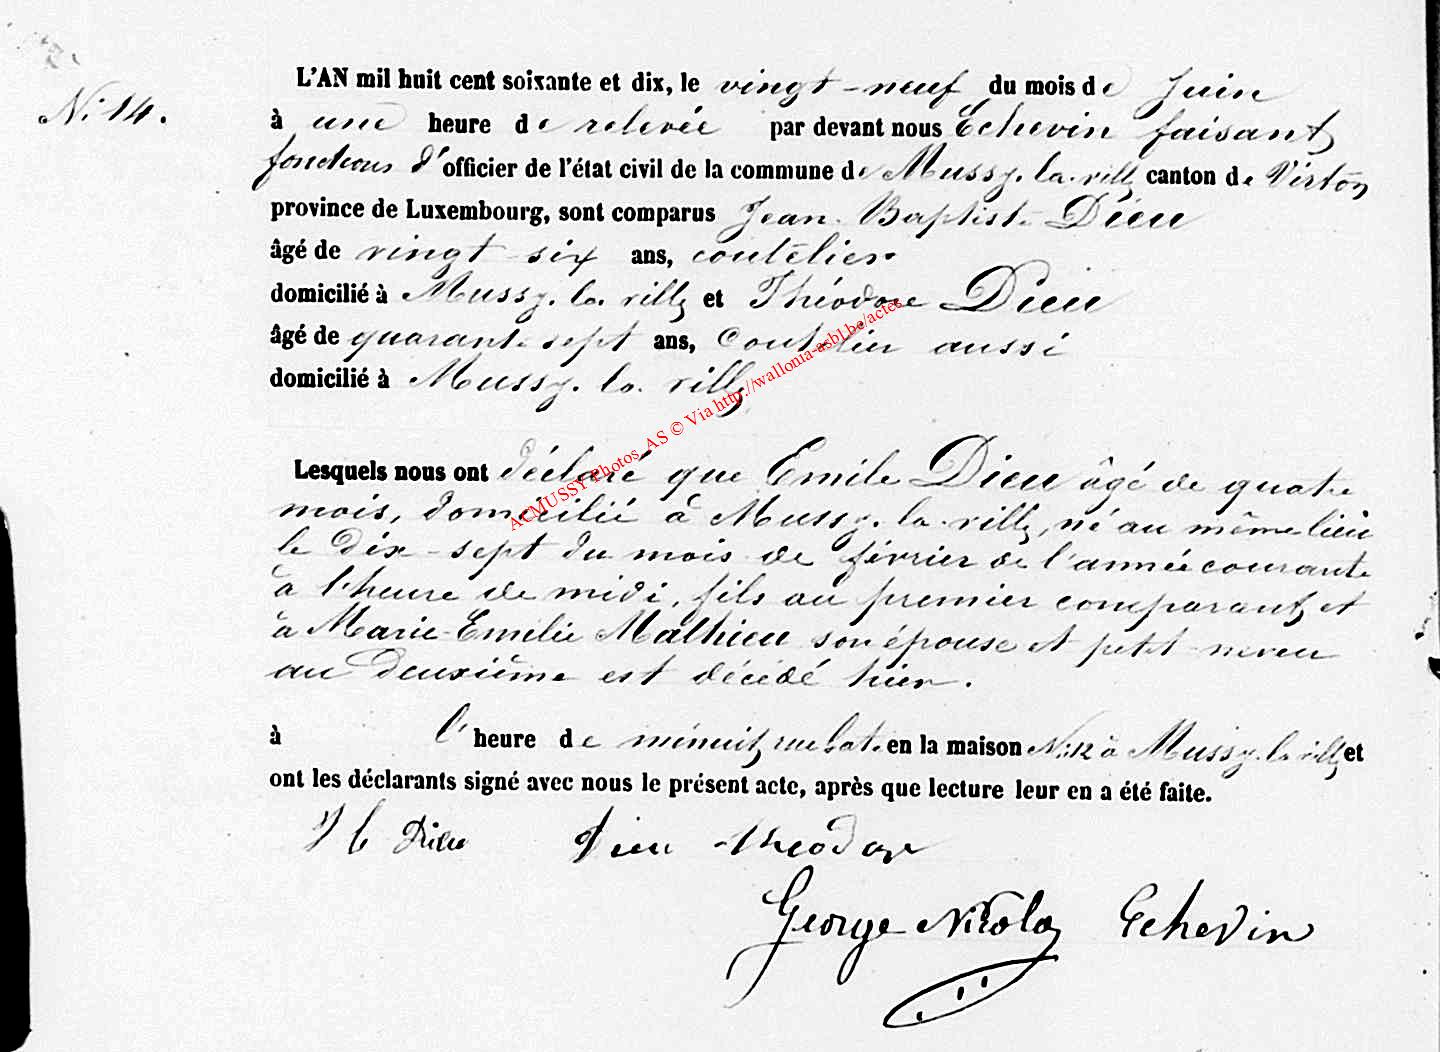 N: 14.
L'AN mil huit cent soixante et dix, le vingt-neuf du mois de Juin
à une heure de relevée par devant nous Echevin faisant
fonctions d'officier de l'état civil de la commune de Mussy-la-ville canton de Virton
province de Luxembourg, sont comparus Jean-Baptiste Dieu
âgé de vingt-six ans, coutelier
domicilié à Mussy-la-ville et Théodore Dieu
âgé de quarante-sept ans, Coutelier aussi
domicilié à Mussy-la-ville
ACMUSSY Photos_AS © Via http://wallonia-asbl.be/actes
Lesquels nous ont déclaré que Emile Dieu âgé de quatre
mois, domicilié à Mussy-la-ville, né au même lieu
le dix-sept du mois de février de l'année courante
à l'heure de midi, fils au premier comparant, et
à Marie-Emilie Mathieu son épouse et petit-neveu
au deuxième est décédé hier.
à l'heure de minuit, rue en la maison N: 12 à Mussy-la-ville et
ont les déclarants signé avec nous le présent acte, après que lecture leur en a été faite.
Dieu Dieu théodore
George Nicolas Echevin